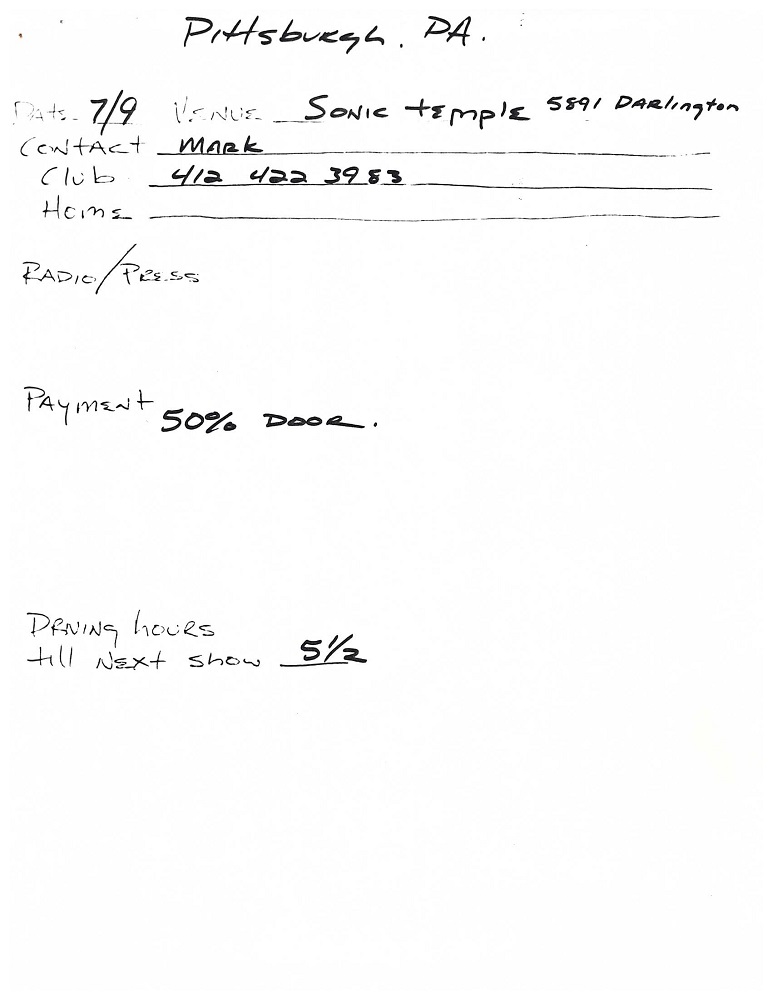 Pittsburgh. PA.
Date 7/9 Venue Sonic temple 5891 Darlington
Contact Mark
Club 412 422 3983
Home
Radio/Press
Payment 50% Door.
Driving hours
till next show 5 1/2